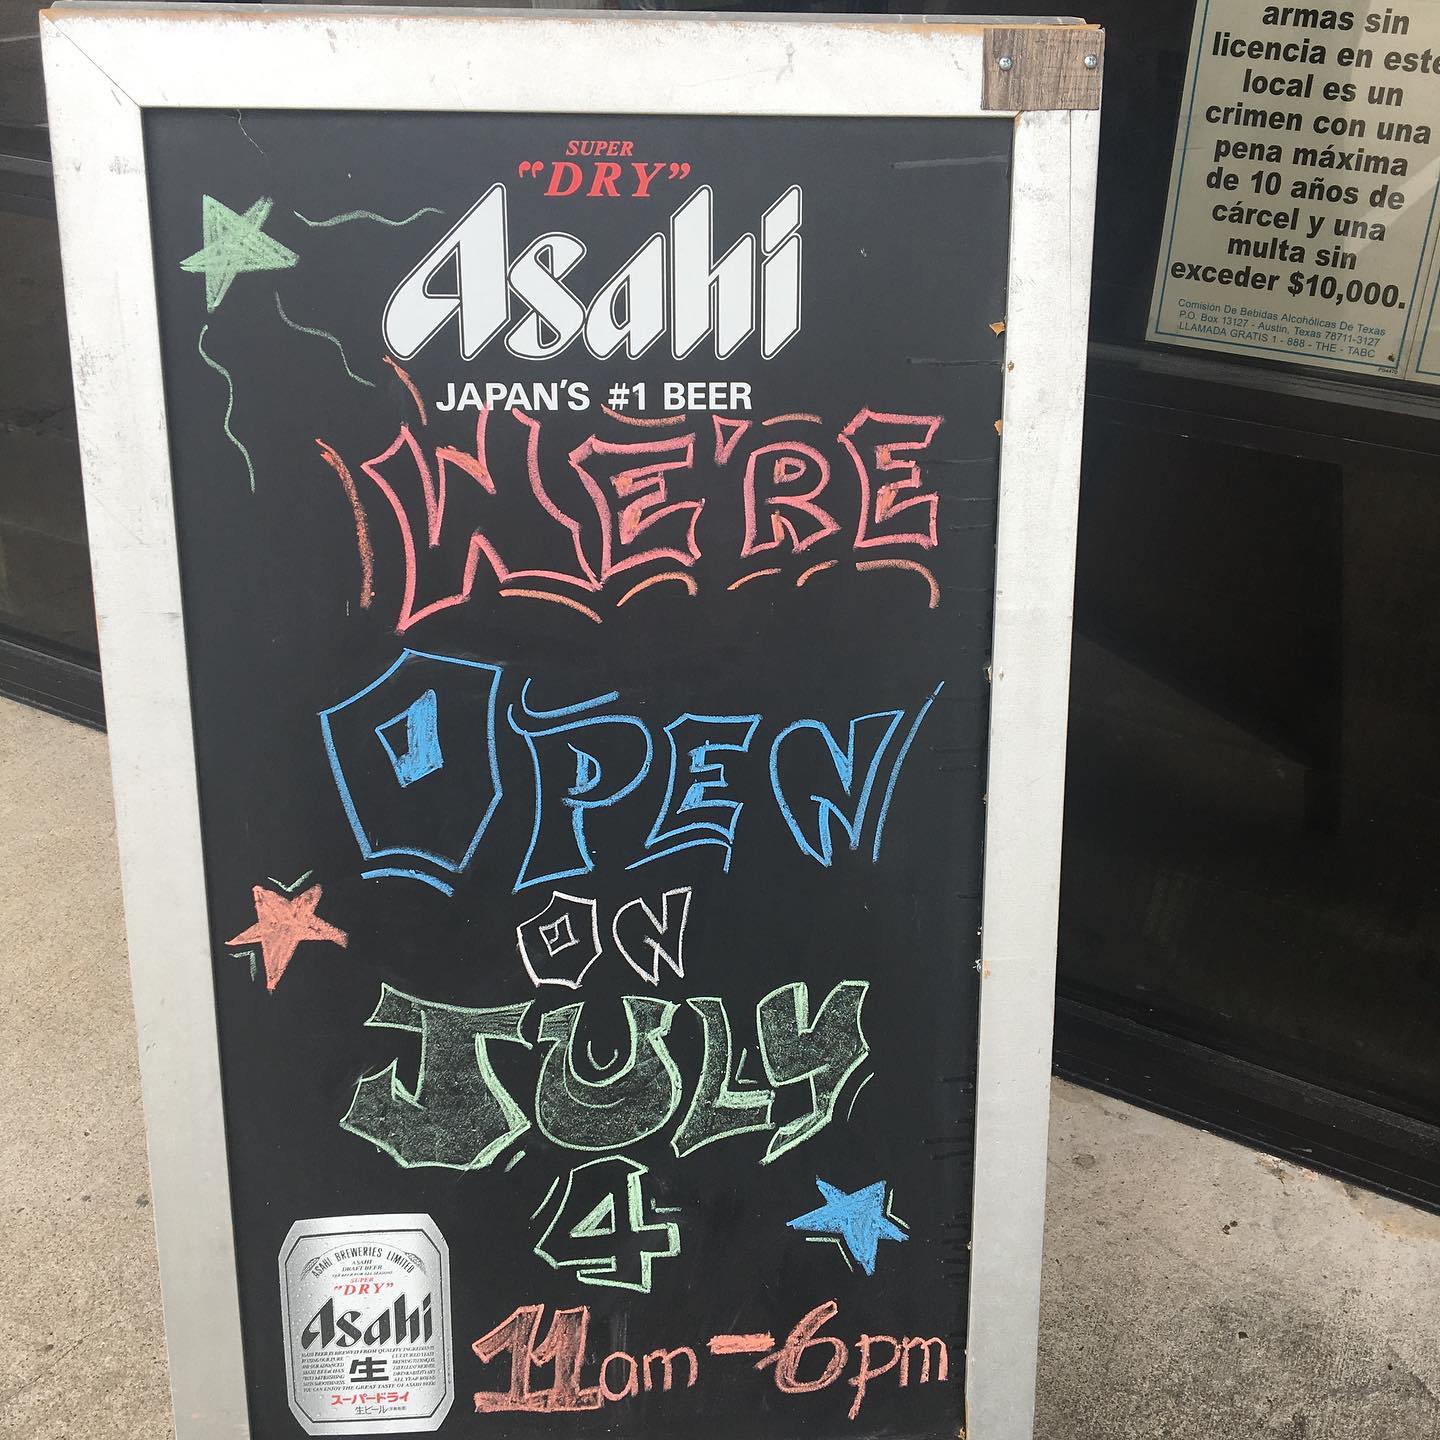 SUPER
"DRY"
Asahi
JAPAN'S #1 BEER
WE'RE
OPEN
ON
JULY
4
11am-6pm
ASAHI BREWERIES LIMITED
ASAHI
DRAFT BEER
SUPER
"DRY"
Asahi
生
YOU CAN ENJOY THE GREAT TASTE OF ASAHI BEER
スーパードライ
生ビール
armas sin
licencia en este
local es un
crimen con una
pena máxima
de 10 años de
cárcel y una
multa sin
exceder $10,000.
Comisión De Bebidas Alcohólicas De Texas
P.O. Box 13127 - Austin, Texas 78711-3127
LLAMADA GRATIS 1 - 888 - THE - TABC